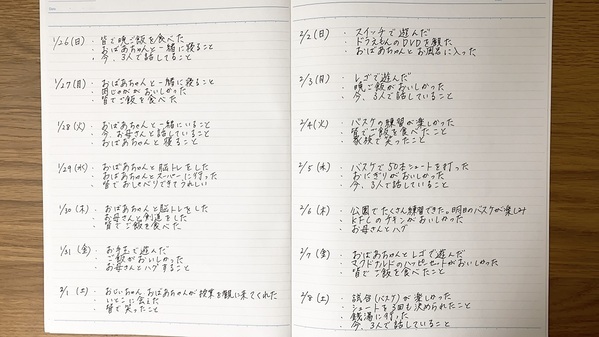 1/26(日)・皆で晩ご飯を食べた
・おばあちゃんと一緒に寝ること
・今、3人で話してること
1/27(月)・おばあちゃんと一緒に寝ること
・肉じゃががおいしかった
・皆でご飯を食べた
1/28(火)・おばあちゃんと一緒にいること
・今、お母さんと話していること
・おばあちゃんと寝ること
1/29(水)・おばあちゃんと脳トレをした
・おばあちゃんとスーパーに行った
・皆でおしゃべりできてうれしい
1/30(木)・おばあちゃんと脳トレをした
・お母さんと剣道をした
・皆でご飯を食べた
1/31(金)・お手玉で遊んだ
・ご飯がおいしかった
・お母さんとハグすること
2/1(土)・おじいちゃん、おばあちゃんが授業を観に来てくれた
・いとこに会えた
・皆で笑ったこと
2/2(日)・スイッチで遊んだ
・ドラえもんのDVDを観た
・おばあちゃんとお風呂に入った
2/3(月)・レゴで遊んだ
・晩ご飯がおいしかった
・今、3人で話していること
2/4(火)・バスケの練習が楽しかった
・皆でご飯を食べたこと
・家族で笑ったこと
2/5(水)・バスケで50本シュートを打った
・おにぎりがおいしかった
・今、3人で話していること
2/6(木)・公園でたくさん練習できた。明日のバスケが楽しみ
・KFCのチキンがおいしかった
・お母さんとハグ
2/7(金)・おばあちゃんとレゴで遊んだ
・マクドナルドのハッピーセットがおいしかった
・皆でご飯を食べたこと
2/8(土)・試合(バスケ)が楽しかった
・シュートを3回も決められたこと
・銭湯に行った
・今、3人で話していること